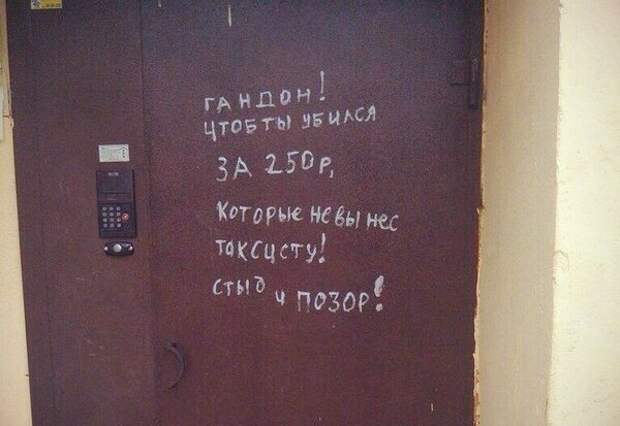 ГАНДОН!
ЧТОБ ТЫ УБИЛСЯ
ЗА 250Р,
КОТОРЫЕ НЕ ВЫНЕС
ТАКСИСТУ!
СТЫД И ПОЗОР!